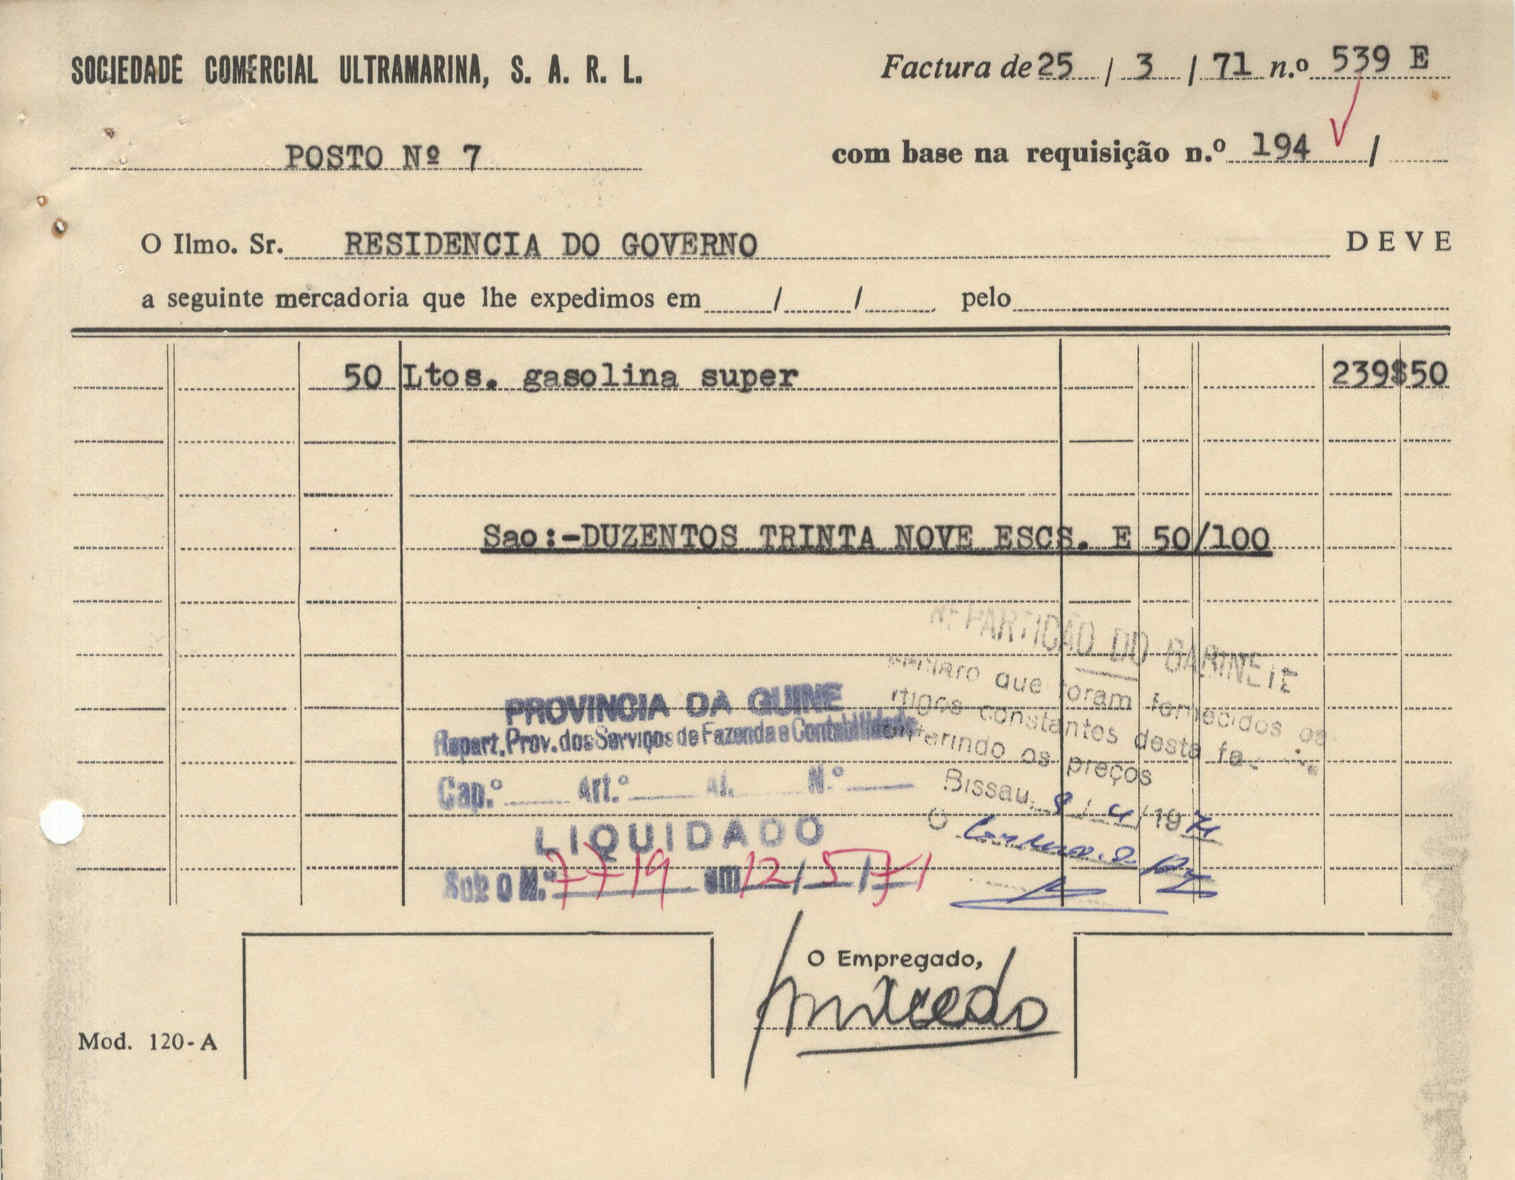 SOCIEDADE COMERCIAL ULTRAMARINA, S. A. R. L.
Factura de 25 / 3 / 71 n.º 539 E
POSTO Nº 7
com base na requisição n.º 194 /
O Ilmo. Sr. RESIDENCIA DO GOVERNO DEVE
a seguinte mercadoria que lhe expedimos em / / pelo
50 Ltos. gasolina super 239$50
Sao:-DUZENTOS TRINTA NOVE ESCS. E 50/100
REPARTIÇÃO DO GABINETE
que foram fornecidos os
constantes desta
os preços
Bissau, 8 / 4 / 1971
O
PROVINCIA DA GUINE
Repart. Prov. dos Serviços de Fazenda e Contabilidade
Cap.º Art.º Al. N.º
LIQUIDADO
Sob o N.º 7719 em 12 / 5 / 71
O Empregado,
Macedo
Mod. 120-A